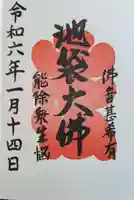 佛名甚希有
池袋大佛
能除衆生怖
令和六年一月十四日